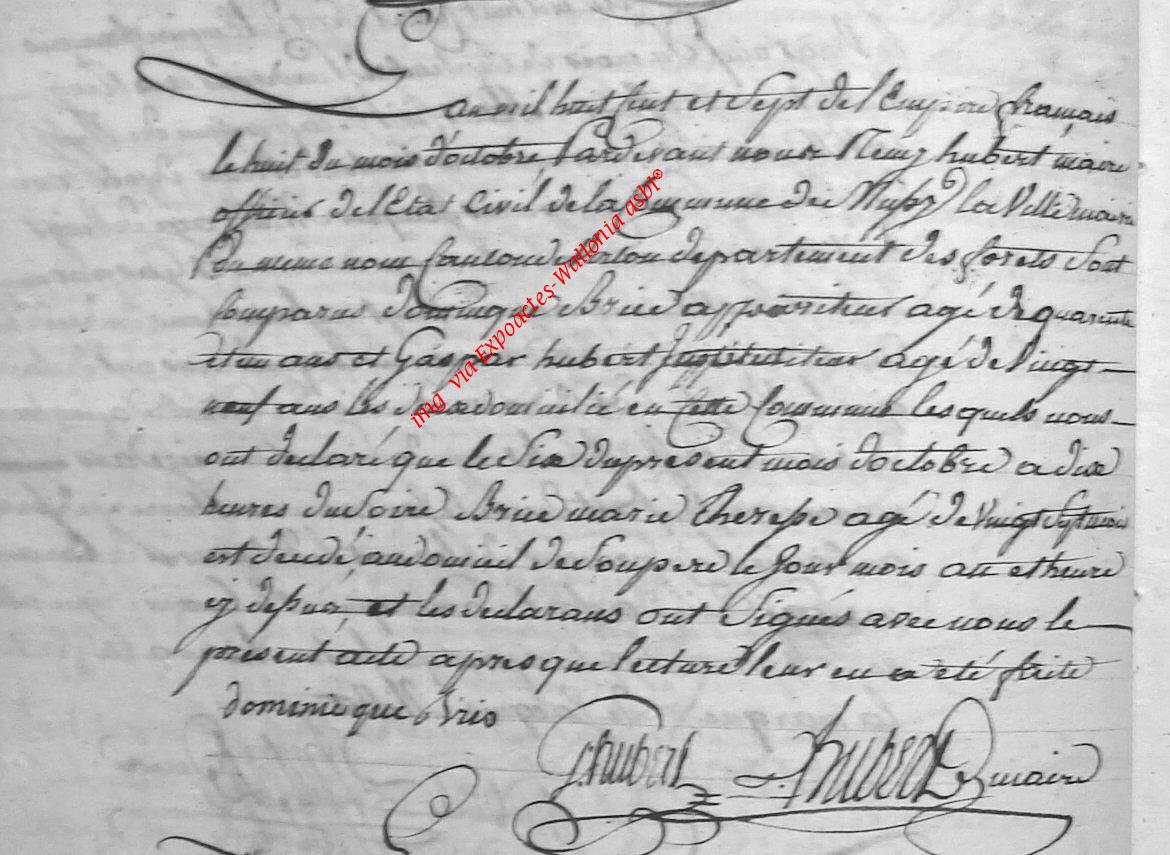 an mil huit cent et sept de l'Empire français
le huit du mois d'octobre Pardevant nous hubert maire
officier de l'Etat Civil de la Commune de la Ville mairie
du meme nom Canton de arlon departement des forets Sont
Comparus Dominique Brice age de quarente
et un ans et Gaspar hubert Instituteur agé de Vingt
neuf ans les deux domicilié en Cette Commune lesquels nous
ont declaré que le Six du present mois d'octobre a dix
heures du Soire Brice marie therese agé de Vingt Sept mois
est decedé au domicil de Son pere le Jour mois an et heure
cy dessus et les declarans ont Signés avec nous le
présent acte apres que lecture leur en a eté faite
dominicque brice
G. hubert hubert maire
img via Expoactes-Wallonia asbl®